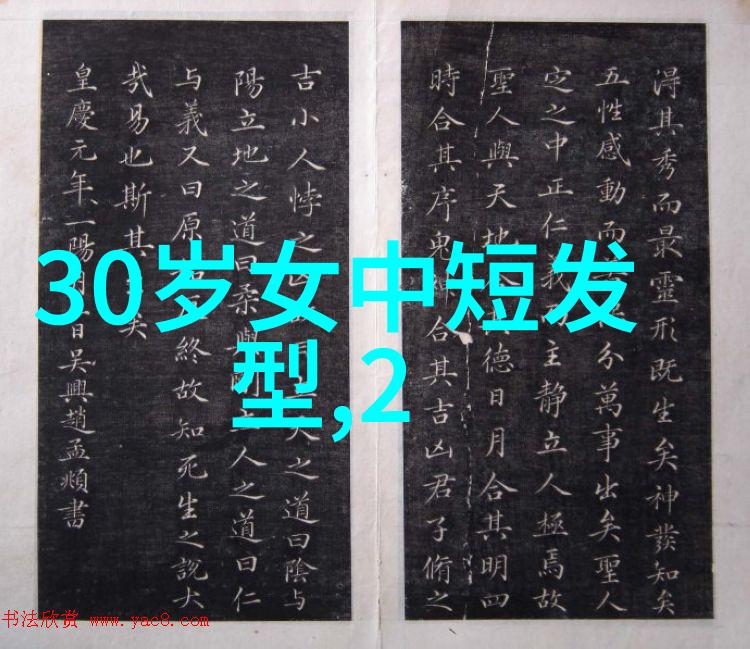 得其秀而最靈形既生矣神發知矣
五性感動而分萬事出矣聖人
定之中正仁義主靜立人極焉故
聖人與天地德日月合其明四
時合其序鬼合其吉凶君子脩之
吉小人悖之天之道曰陰与
陽立地之道曰柔與人之道曰仁
与義又曰原終故知死生之說大
哉易也斯其矣
皇慶元年一陽日吳興趙孟頫書
30岁女中短发
型,2
书法欣赏 www.yac8.com